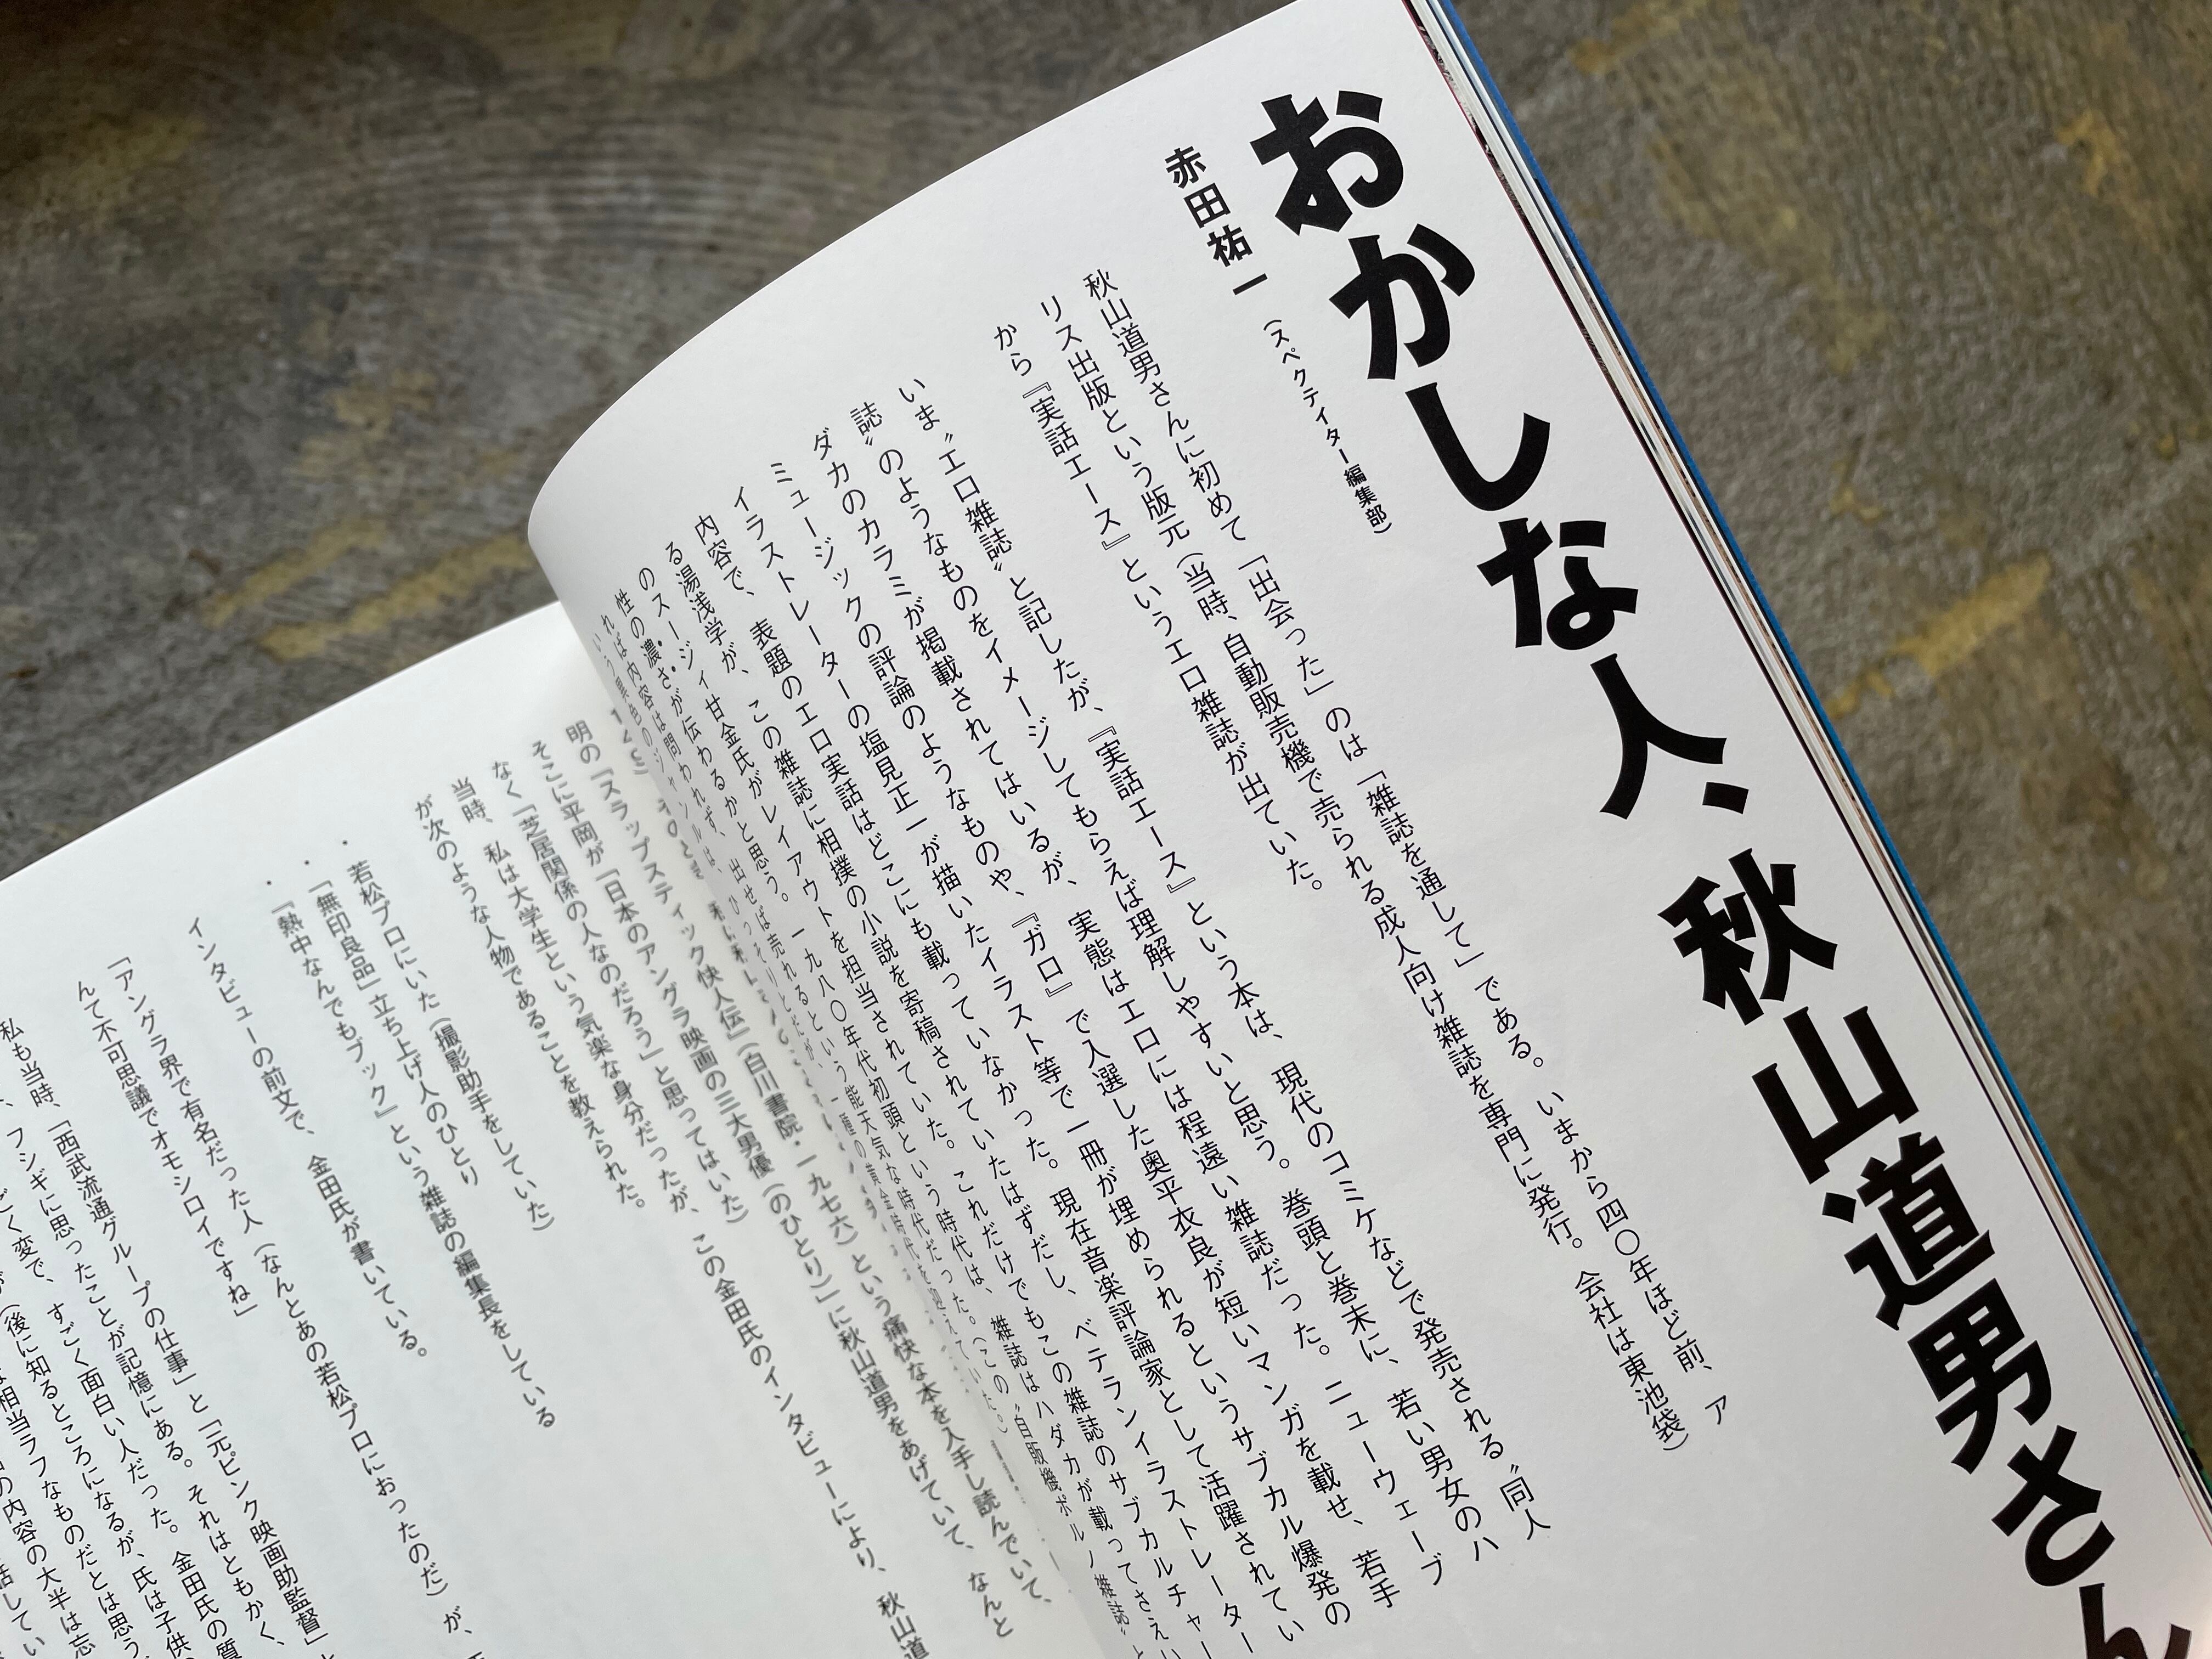 おかしな人、秋山道男さん
赤田祐一
（スペクテイター編集部）
秋山道男さんに初めて「出会った」のは「雑誌を通して」である。いまから四〇年ほど前、ア
リス出版という版元（当時、自動販売機で売られる成人向け雑誌を専門に発行。会社は東池袋）
から『実話エース』というエロ雑誌が出ていた。
いま〝エロ雑誌〟と記したが、『実話エース』という本は、現代のコミケなどで発売される〝同人
誌〟のようなものをイメージしてもらえば理解しやすいと思う。巻頭と巻末に、若い男女のハ
ダカのカラミが掲載されてはいるが、実態はエロには程遠い雑誌だった。ニューウェーブ
ミュージックの評論のようなものや、『ガロ』で入選した奥平衣良が短いマンガを載せ、若手
イラストレーターの塩見正一が描いたイラスト等で一冊が埋められるというサブカル爆発の
内容で、表題のエロ実話はどこにも載っていなかった。現在音楽評論家として活躍されてい
る湯浅学が、この雑誌に相撲の小説を寄稿されていたはずだし、ベテランイラストレーター
のスージィ甘金氏がレイアウトを担当されていた。これだけでもこの雑誌のサブカルチャー
性の濃さが伝わるかと思う。一九八〇年代初頭という時代は、雑誌はハダカが載ってさえい
れば内容は問われず、出せば売れるという能天気な時代だった。（この〝自販機ポルノ雑誌〟と
明の『スラップスティック快人伝』（白川書院・一九七六）という痛快な本を入手し読んでいて、
そこに平岡が「日本のアングラ映画の三大男優（のひとり）」に秋山道男をあげていて、なんと
なく「芝居関係の人なのだろう」と思ってはいた）
当時、私は大学生という気楽な身分だったが、この金田氏のインタビューにより、秋山道
が次のような人物であることを教えられた。
・若松プロにいた（撮影助手をしていた）
・「無印良品」立ち上げ人のひとり
・『熱中なんでもブック』という雑誌の編集長をしている
インタビューの前文で、金田氏が書いている。
「アングラ界で有名だった人（なんとあの若松プロにおったのだ）が、
んて不可思議でオモシロイですね」
私も当時、「西武流通グループの仕事」と「元ピンク映画助監督」と
、フシギに思ったことが記憶にある。それはともかく、
ごく変で、すごく面白い人だった。金田氏の質
（後に知るところになるが、氏は子供
相当ラフなものだとは思う
の内容の大半は忘